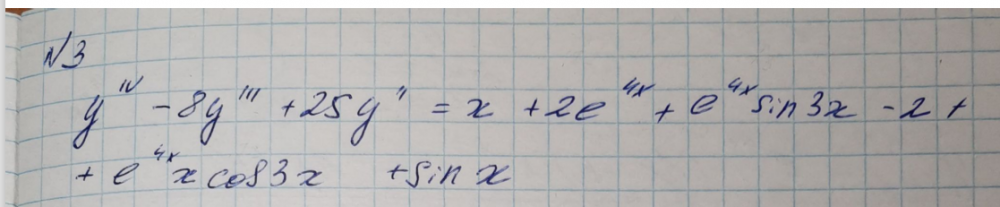 №3
y^IV - 8y''' + 25y'' = x + 2e^4x + e^4x sin3x - 2 +
+ e^4x x cos3x + sin x